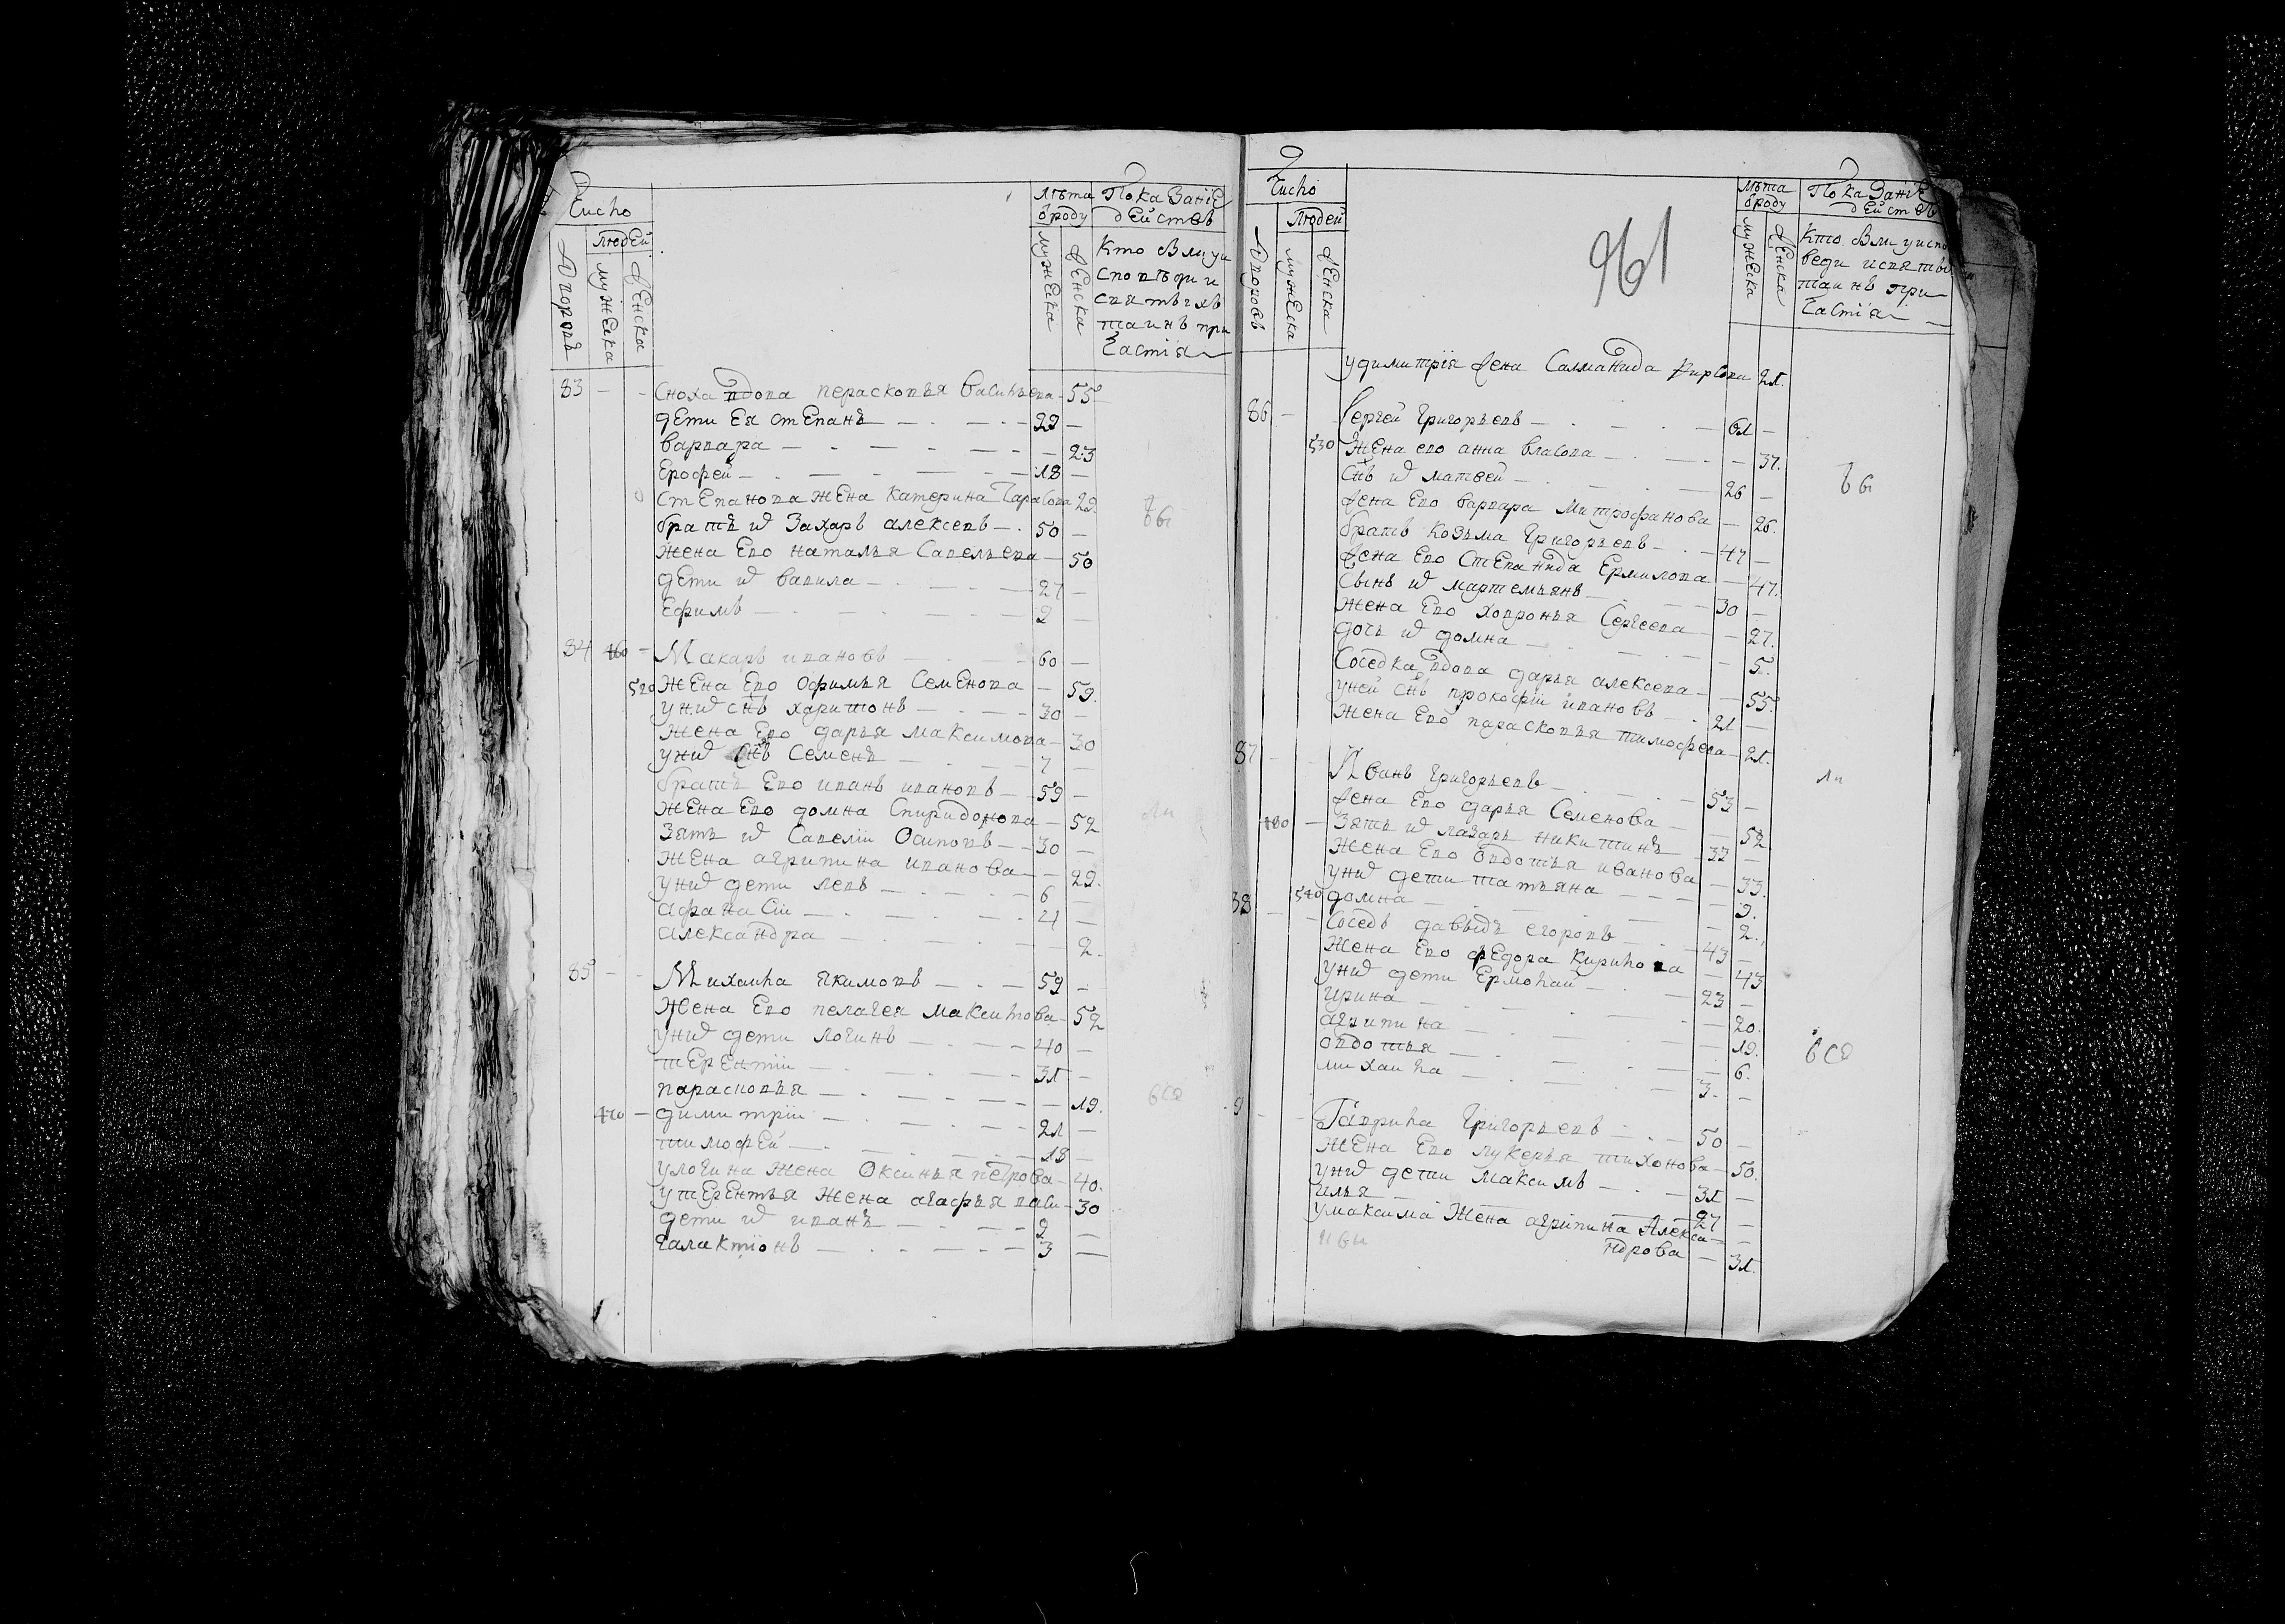 Число
Лѣта
вроду
Показаніе
действъ
Дворовъ
Людей
мужеска
женска
мужеска
женска
Кто были у и
споведи и
святыхъ
таинъ при
частія
83 — — Сноха вдова перасковья василъева — 55
дети Ея степанъ — 29 —
варвара — — 23
Ерофей — 18 —
Степанова жена катерина Тарасова 29.
братъ ихъ Захаръ алексевъ — 50 —
жена Ево наталья Савельева — 50
дети ихъ вавила — 27 —
Ефимъ — 2 —
вы
84 460 — Макаръ ивановъ — 60 —
520 жена Ево офимья Семенова — 59.
уних снъ харитонъ — 30 —
жена Ево дарья максимова — 30
уних снъ Семенъ — 7 —
братъ Ево иванъ ивановъ — 59 —
жена Ево домна Спиридонова — 52
зять ихъ Савелiи Осиповъ — 30 —
жена агрипина иванова — 29.
уних дети левъ — 6 —
афанасiи — 4 —
александра — — 2.
ли
85 — — Михаила якимовъ — 59 —
жена Ево пелагея максимова — 52
уних дети логинъ — 40 —
терентiи — 31 —
парасковья — — 19.
470 — димитрiи — 21 —
тимофей — 18 —
улогина жена Оксинья петрова — 40.
утерентья жена агафья васи — 30
дети ихъ иванъ — 9 —
галактiонъ — 3 —
все
Число
961
Лѣта
вроду
Показаніе
действъ
Дворовъ
Людей
мужеска
женска
мужеска
женска
Кто были уиспо
веди исвятыхъ
таинъ при
частія
удимитрiя жена Саламанида 21.
86 — Сергей григорьевъ — 61 —
530 жена ево анна власова — 37.
Снъ ихъ матвей — 26 —
жена Ево варвара митрофанова — 26.
братъ козьма григорьевъ — 47 —
жена Ево Степанида Ермилова — 47.
сынъ ихъ мартемьянъ — 30 —
жена Ево ховронья Сергеева — 27.
дочь ихъ домна — — 5.
Соседка вдова дарья алексева — 55.
уней снъ прокофiи ивановъ — 21 —
жена Ево парасковья тимофеева — 21.
вы
87 — — Иванъ григорьевъ — 53 —
жена Ево дарья Семенова — — 52
480 — Зять ихъ лазарь никитинъ — 33 —
жена Ево овдотья иванова — 33.
уних дети татьяна — — 9.
540 домна — — 2.
ли
88 — — Соседъ давыдъ егоровъ — 43 —
жена Ево федора кирилова — 43
уних дети Ермолаи — 23 —
ирина — — 20.
агрипина — — 19.
овдотья — — 6.
михаила — 3. —
все
9 — — Гаврила григорьевъ — 50 —
жена Ево лукерья тихонова — 50.
уних дети максимъ — 31 —
илья — 27 —
умаксима жена агрипина Алекса —
ндрова — 31.
ивы